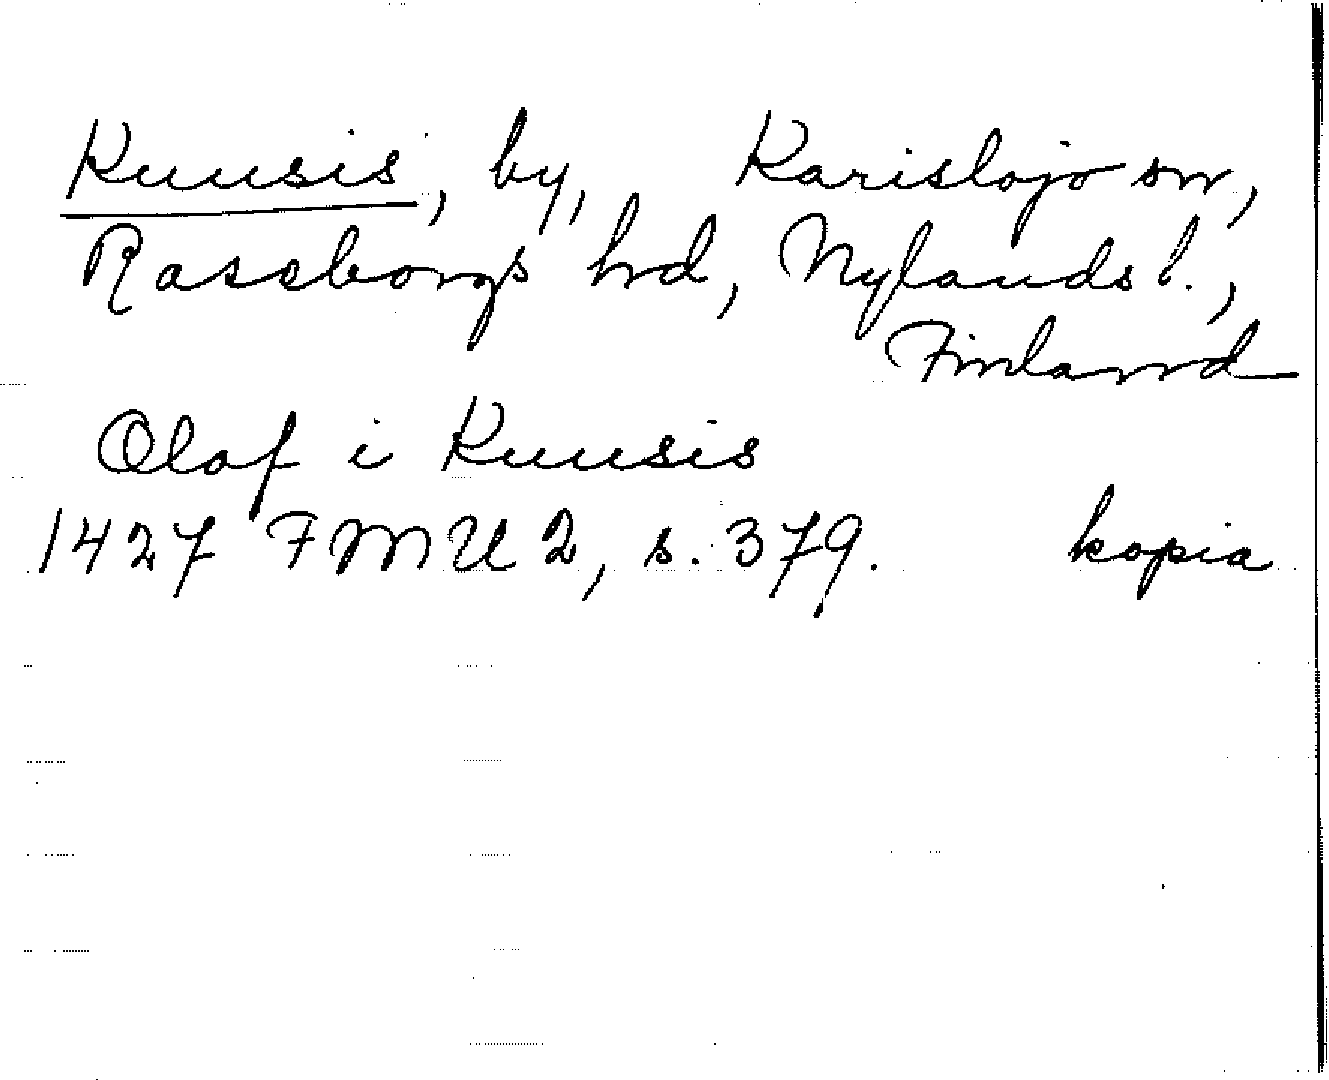 Kuusis, by, Karislojo sn,
Raseborgs hd, Nylands l.,
Finland
Olaf i Kuusis
1427 FMU 2, s. 379. kopia